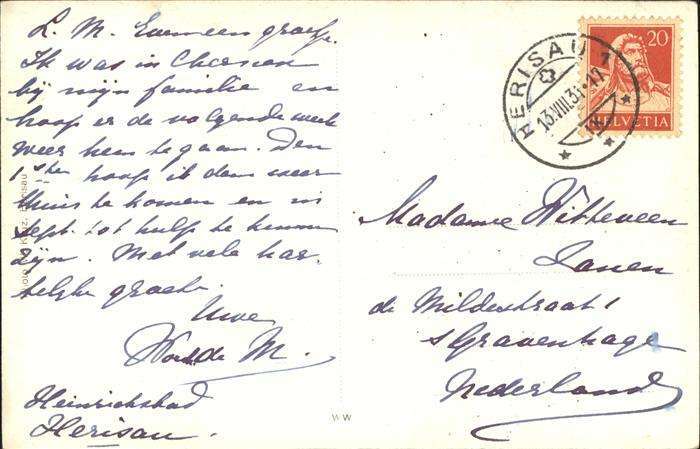 L. M. Even een groetje.
Ik was in
bij mijn familie en
hoop er de volgende week
weer heen te gaan. Den
1sten hoop ik dan weer
thuis te komen en in
Sept. tot hulp te kunnen
zijn. Met vele har-
telijke groeten
Uwe
M.
Heinrichsbad
Herisau.
Madame Witteveen
de Mildestraat 1
s Gravenhage
Nederland
HERISAU 1
13.VIII.31
20
HELVETIA
Herisau
WW